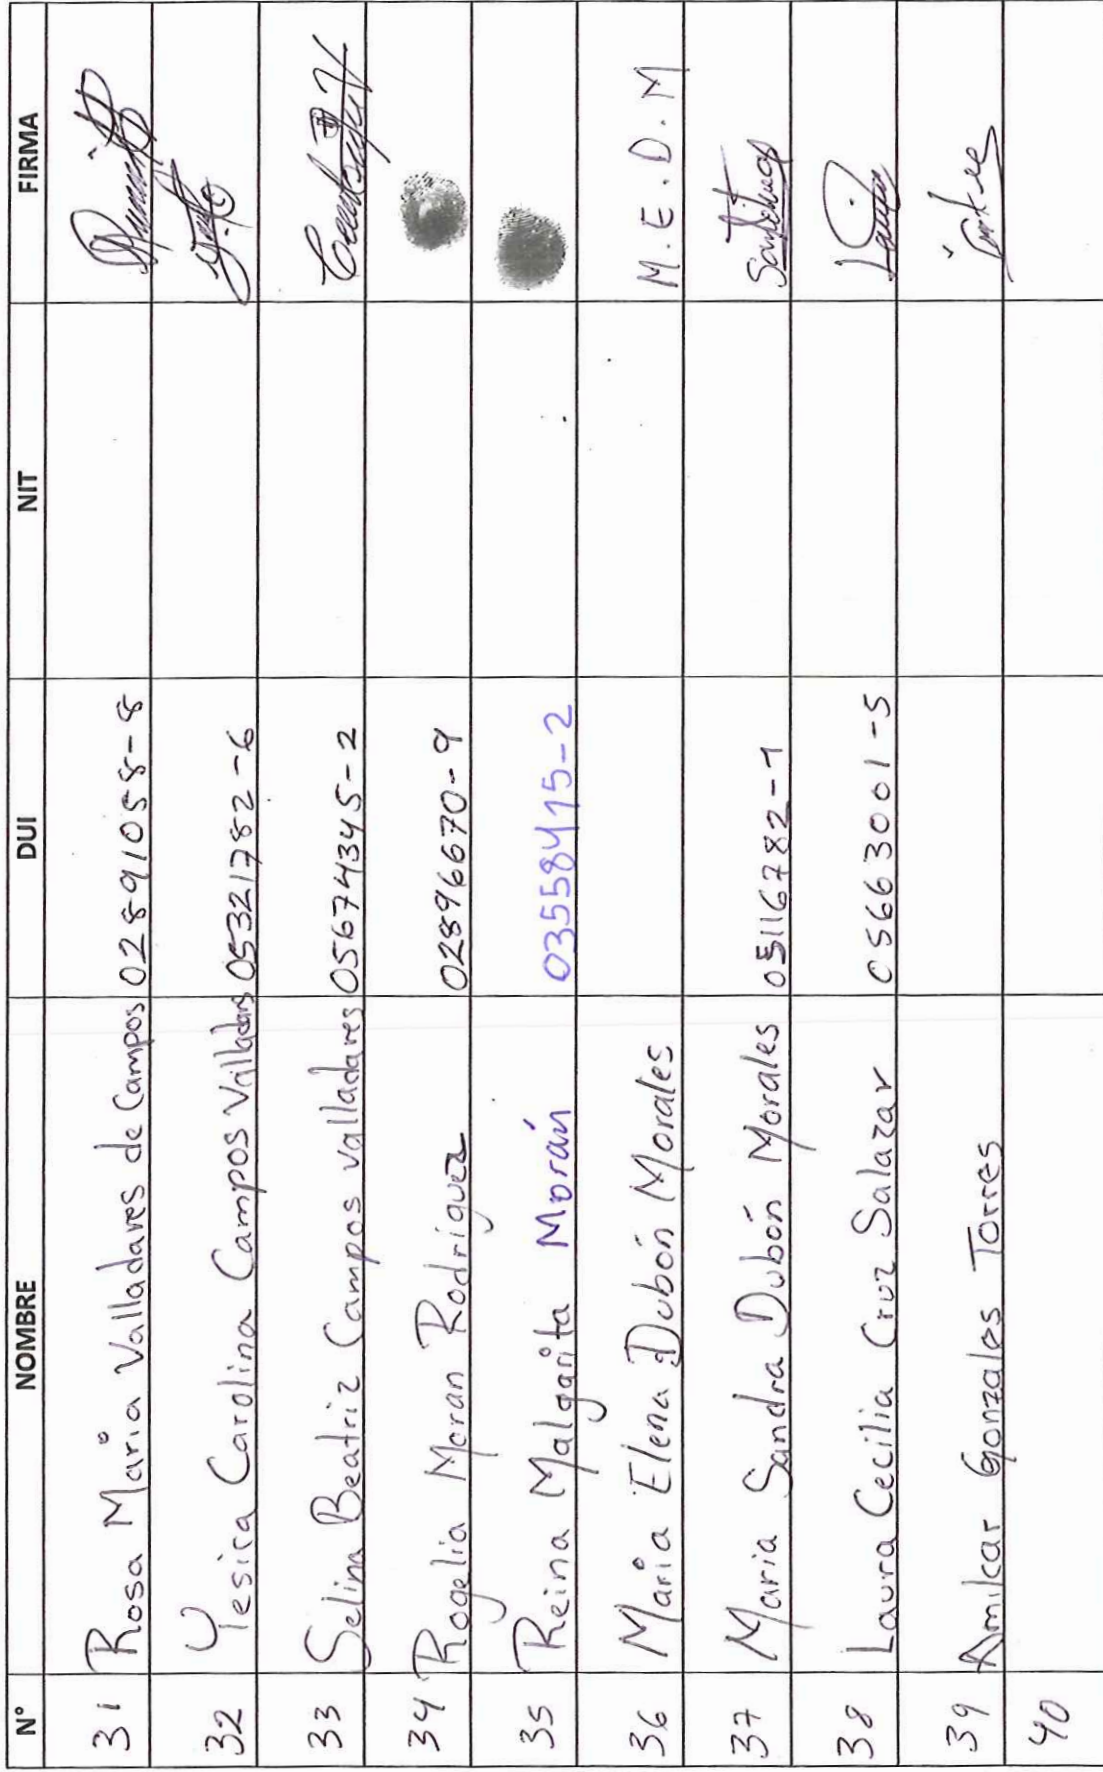 N° NOMBRE DUI NIT FIRMA
31 Rosa Maria Valladares de Campos 02891058-8
32 Yesica Carolina Campos Valladares 05321782-6
33 Selina Beatriz Campos valladares 05674345-2
34 Rogelia Moran Rodriguez 02896670-9
35 Reina Malgarita Morán 03558415-2
36 Maria Elena Dubón Morales M.E.D.M
37 Maria Sandra Dubón Morales 05116782-1
38 Laura Cecilia Cruz Salazar 05663001-5
39 Amilcar Gonzales Torres
40